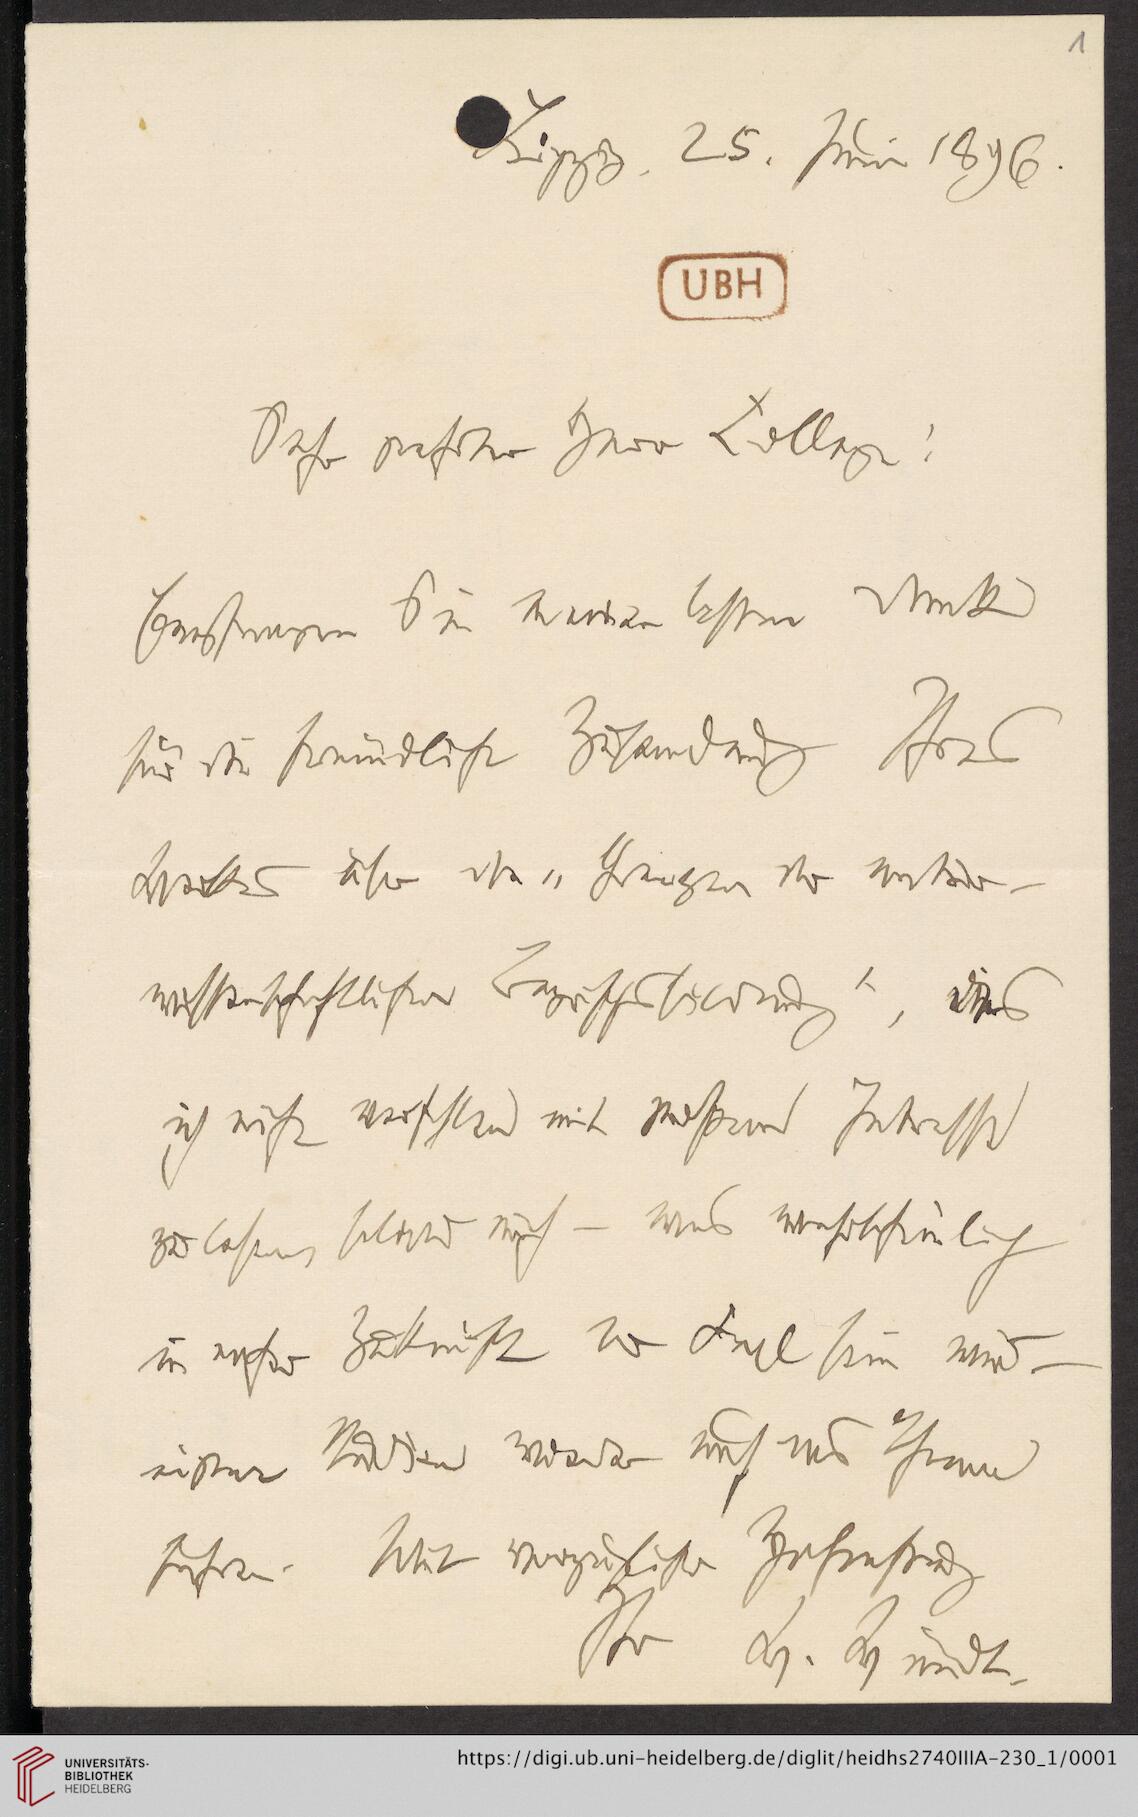 1
Leipzig, 25. Juni 1896.
UBH
Sehr geehrter Herr College!
Empfangen Sie meinen besten Dank
für die freundliche Zusendung Ihres
Werkes über die „Grenzen der natur-
wissenschaftlichen Begriffsbildung", das
ich nicht verfehlen mit grossem Interesse
zu lesen, selbst mich – was wahrscheinlich
in naher Zukunft der Fall sein wird –
meine Studien wieder auf das Thema
führen. Mit vorzüglicher Hochachtung
Ihr W. Wundt.
UNIVERSITÄTS-
BIBLIOTHEK
HEIDELBERG
https://digi.ub.uni-heidelberg.de/diglit/heidhs2740IIIA-230_1/0001